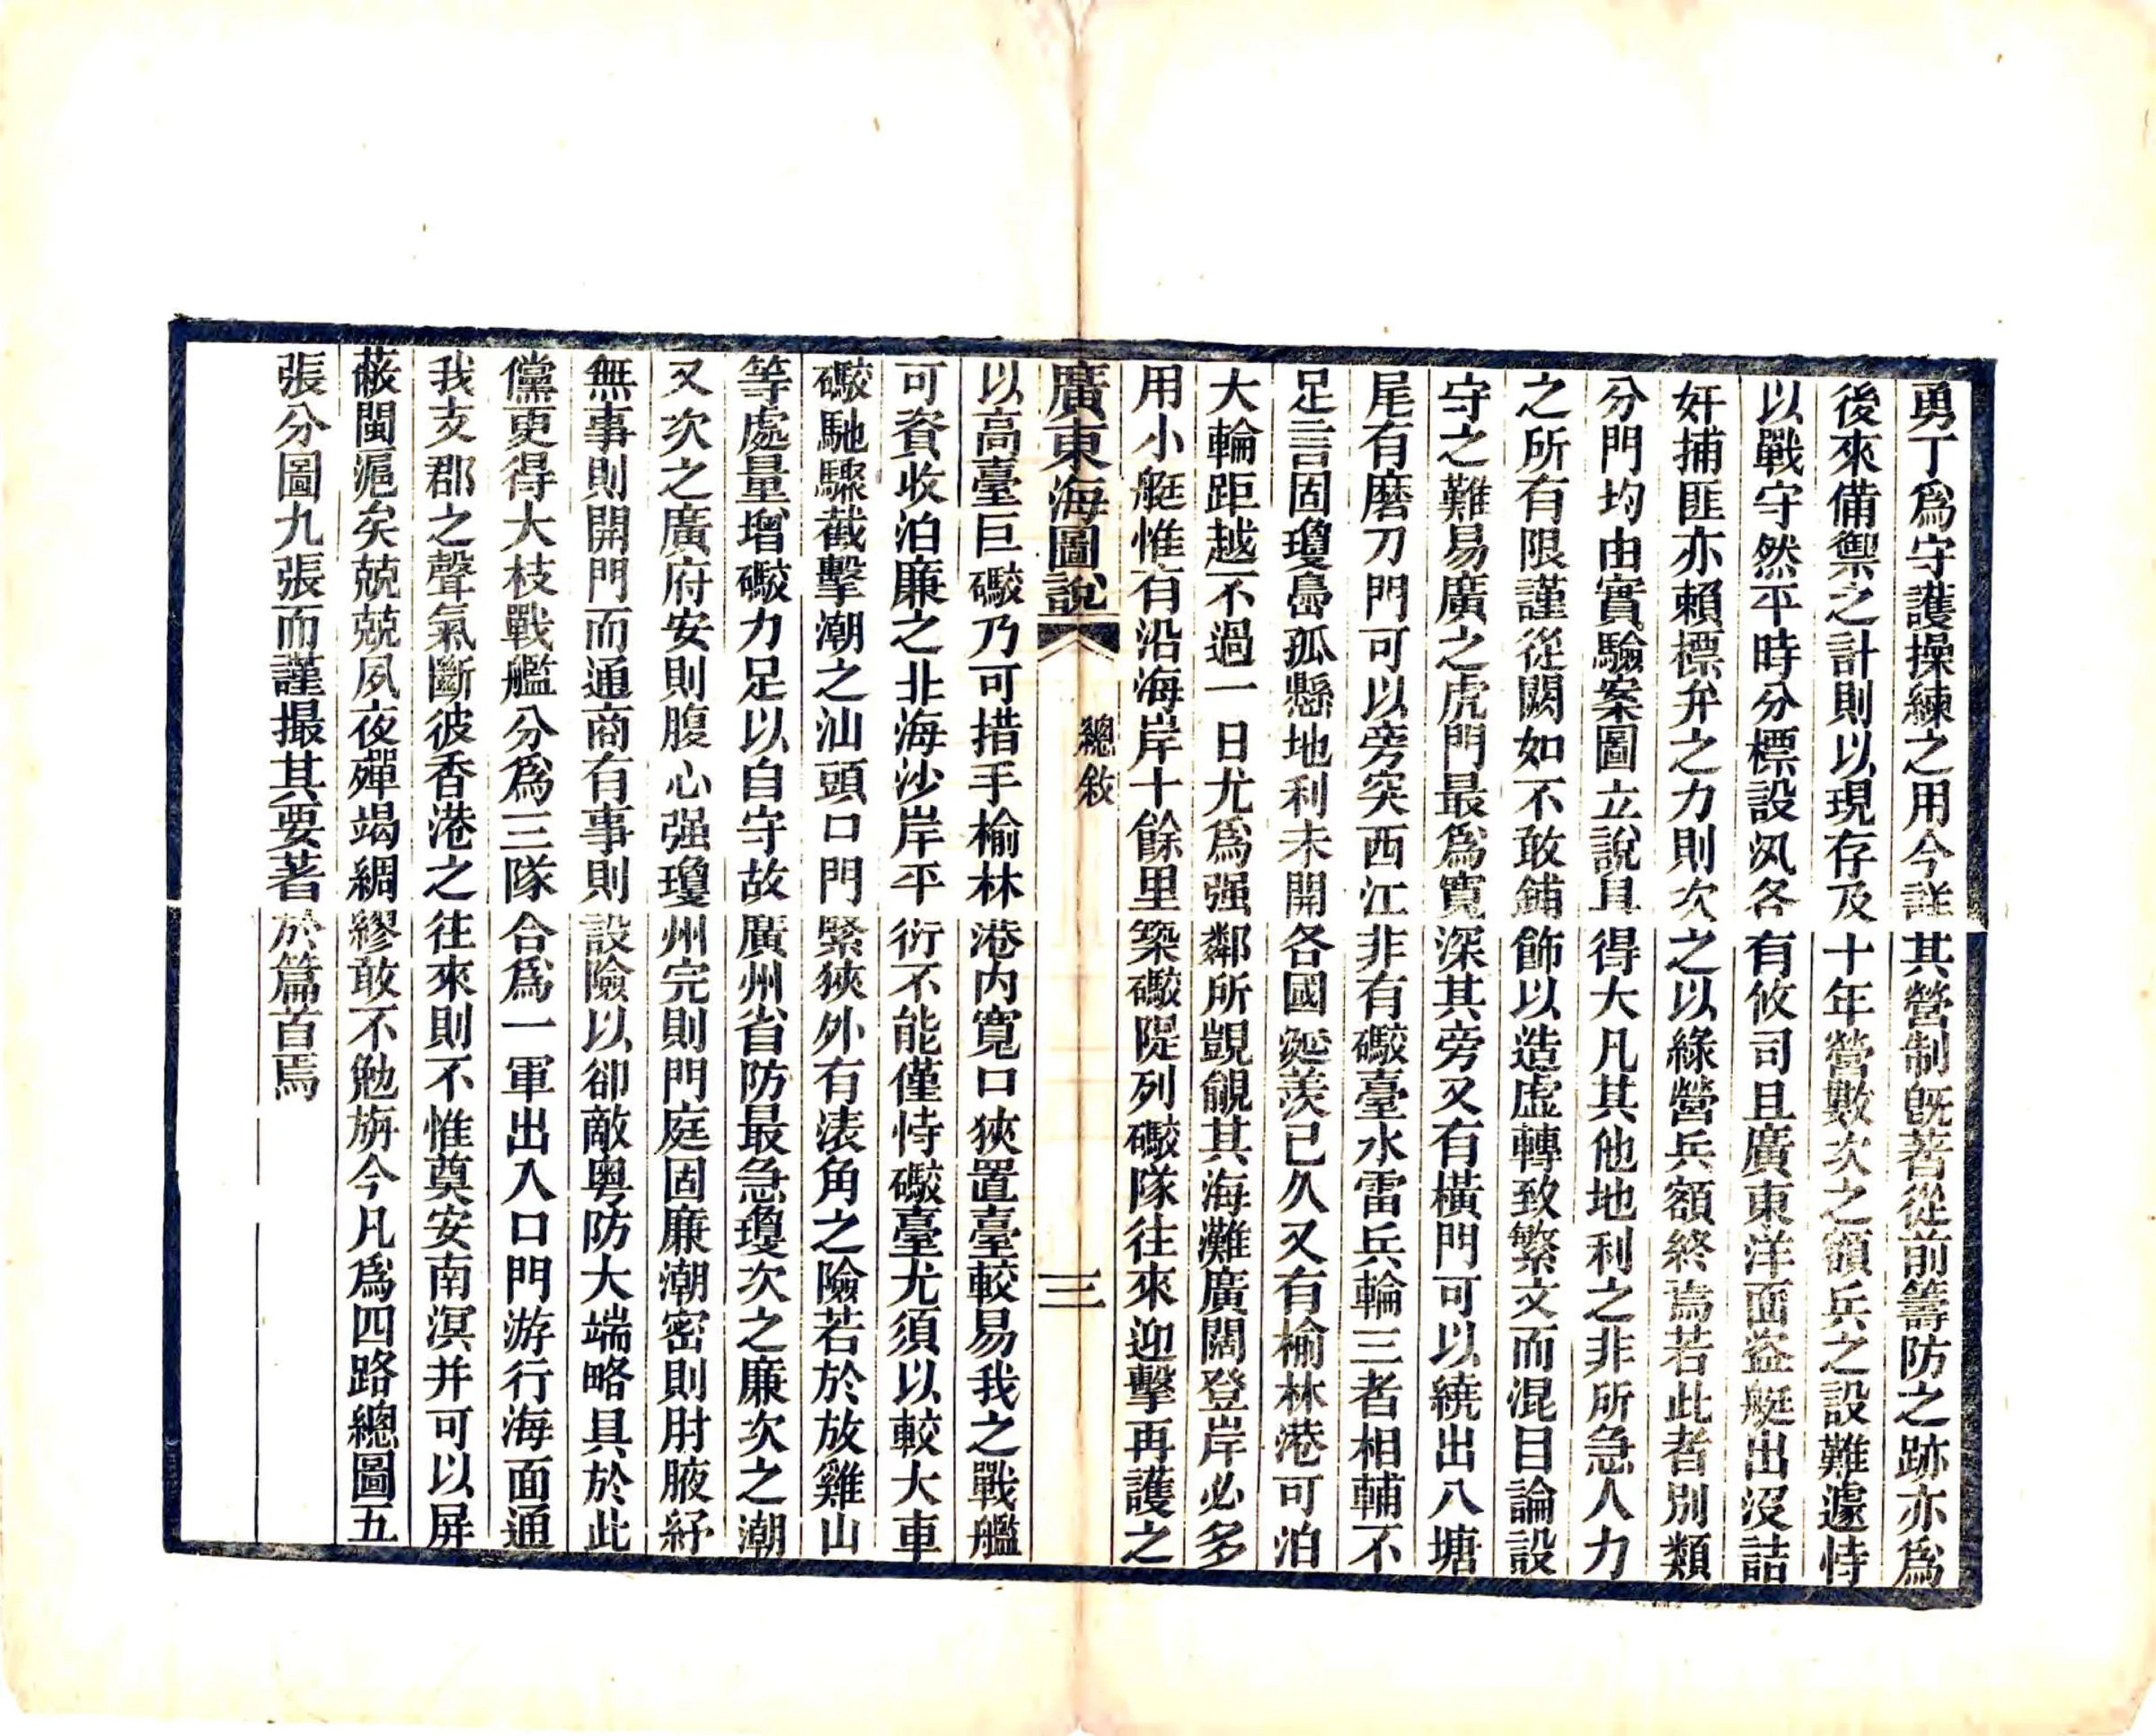 勇丁爲守護操練之用今詳其營制旣著從前籌防之跡亦爲
後來備禦之計則以現存及十年營數次之額兵之設難遽恃
以戰守然平時分標設汛各有攸司且廣東洋面盜艇出沒詰
奸捕匪亦賴標弁之力則次之以綠營兵額終焉若此者別類
分門均由實驗案圖立說具得大凡其他地利之非所急人力
之所有限謹從闕如不敢鋪飾以造虛轉致繁文而混目論設
守之難易廣之虎門最爲寬深其旁又有橫門可以繞出八塘
尾有磨刀門可以旁突西江非有礮臺水雷兵輪三者相輔不
足言固瓊島孤懸地利未開各國涎羨已久又有榆林港可泊
大輪距越不過一日尤爲强鄰所覬覦其海灘廣闊登岸必多
用小艇惟有沿海岸十餘里築礮隄列礮隊往來迎擊再護之
廣東海圖說
總敘
三
以高臺巨礮乃可措手榆林港內寬口狹置臺較易我之戰艦
可資收泊廉之北海沙岸平衍不能僅恃礮臺尤須以較大車
礮馳驟截擊潮之汕頭口門緊狹外有㵎角之險若於放雞山
等處量增礮力足以自守故廣州省防最急瓊次之廉次之潮
又次之廣府安則腹心强瓊州完則門庭固廉潮密則肘腋紓
無事則開門而通商有事則設險以卻敵粵防大端略具於此
儻更得大枝戰艦分爲三隊合爲一軍出入口門游行海面通
我支郡之聲氣斷彼香港之往來則不惟奠安南溟并可以屏
蔽閩滬矣兢兢夙夜殫竭綢繆敢不勉旃今凡爲四路總圖五
張分圖九張而謹撮其要著於篇首焉